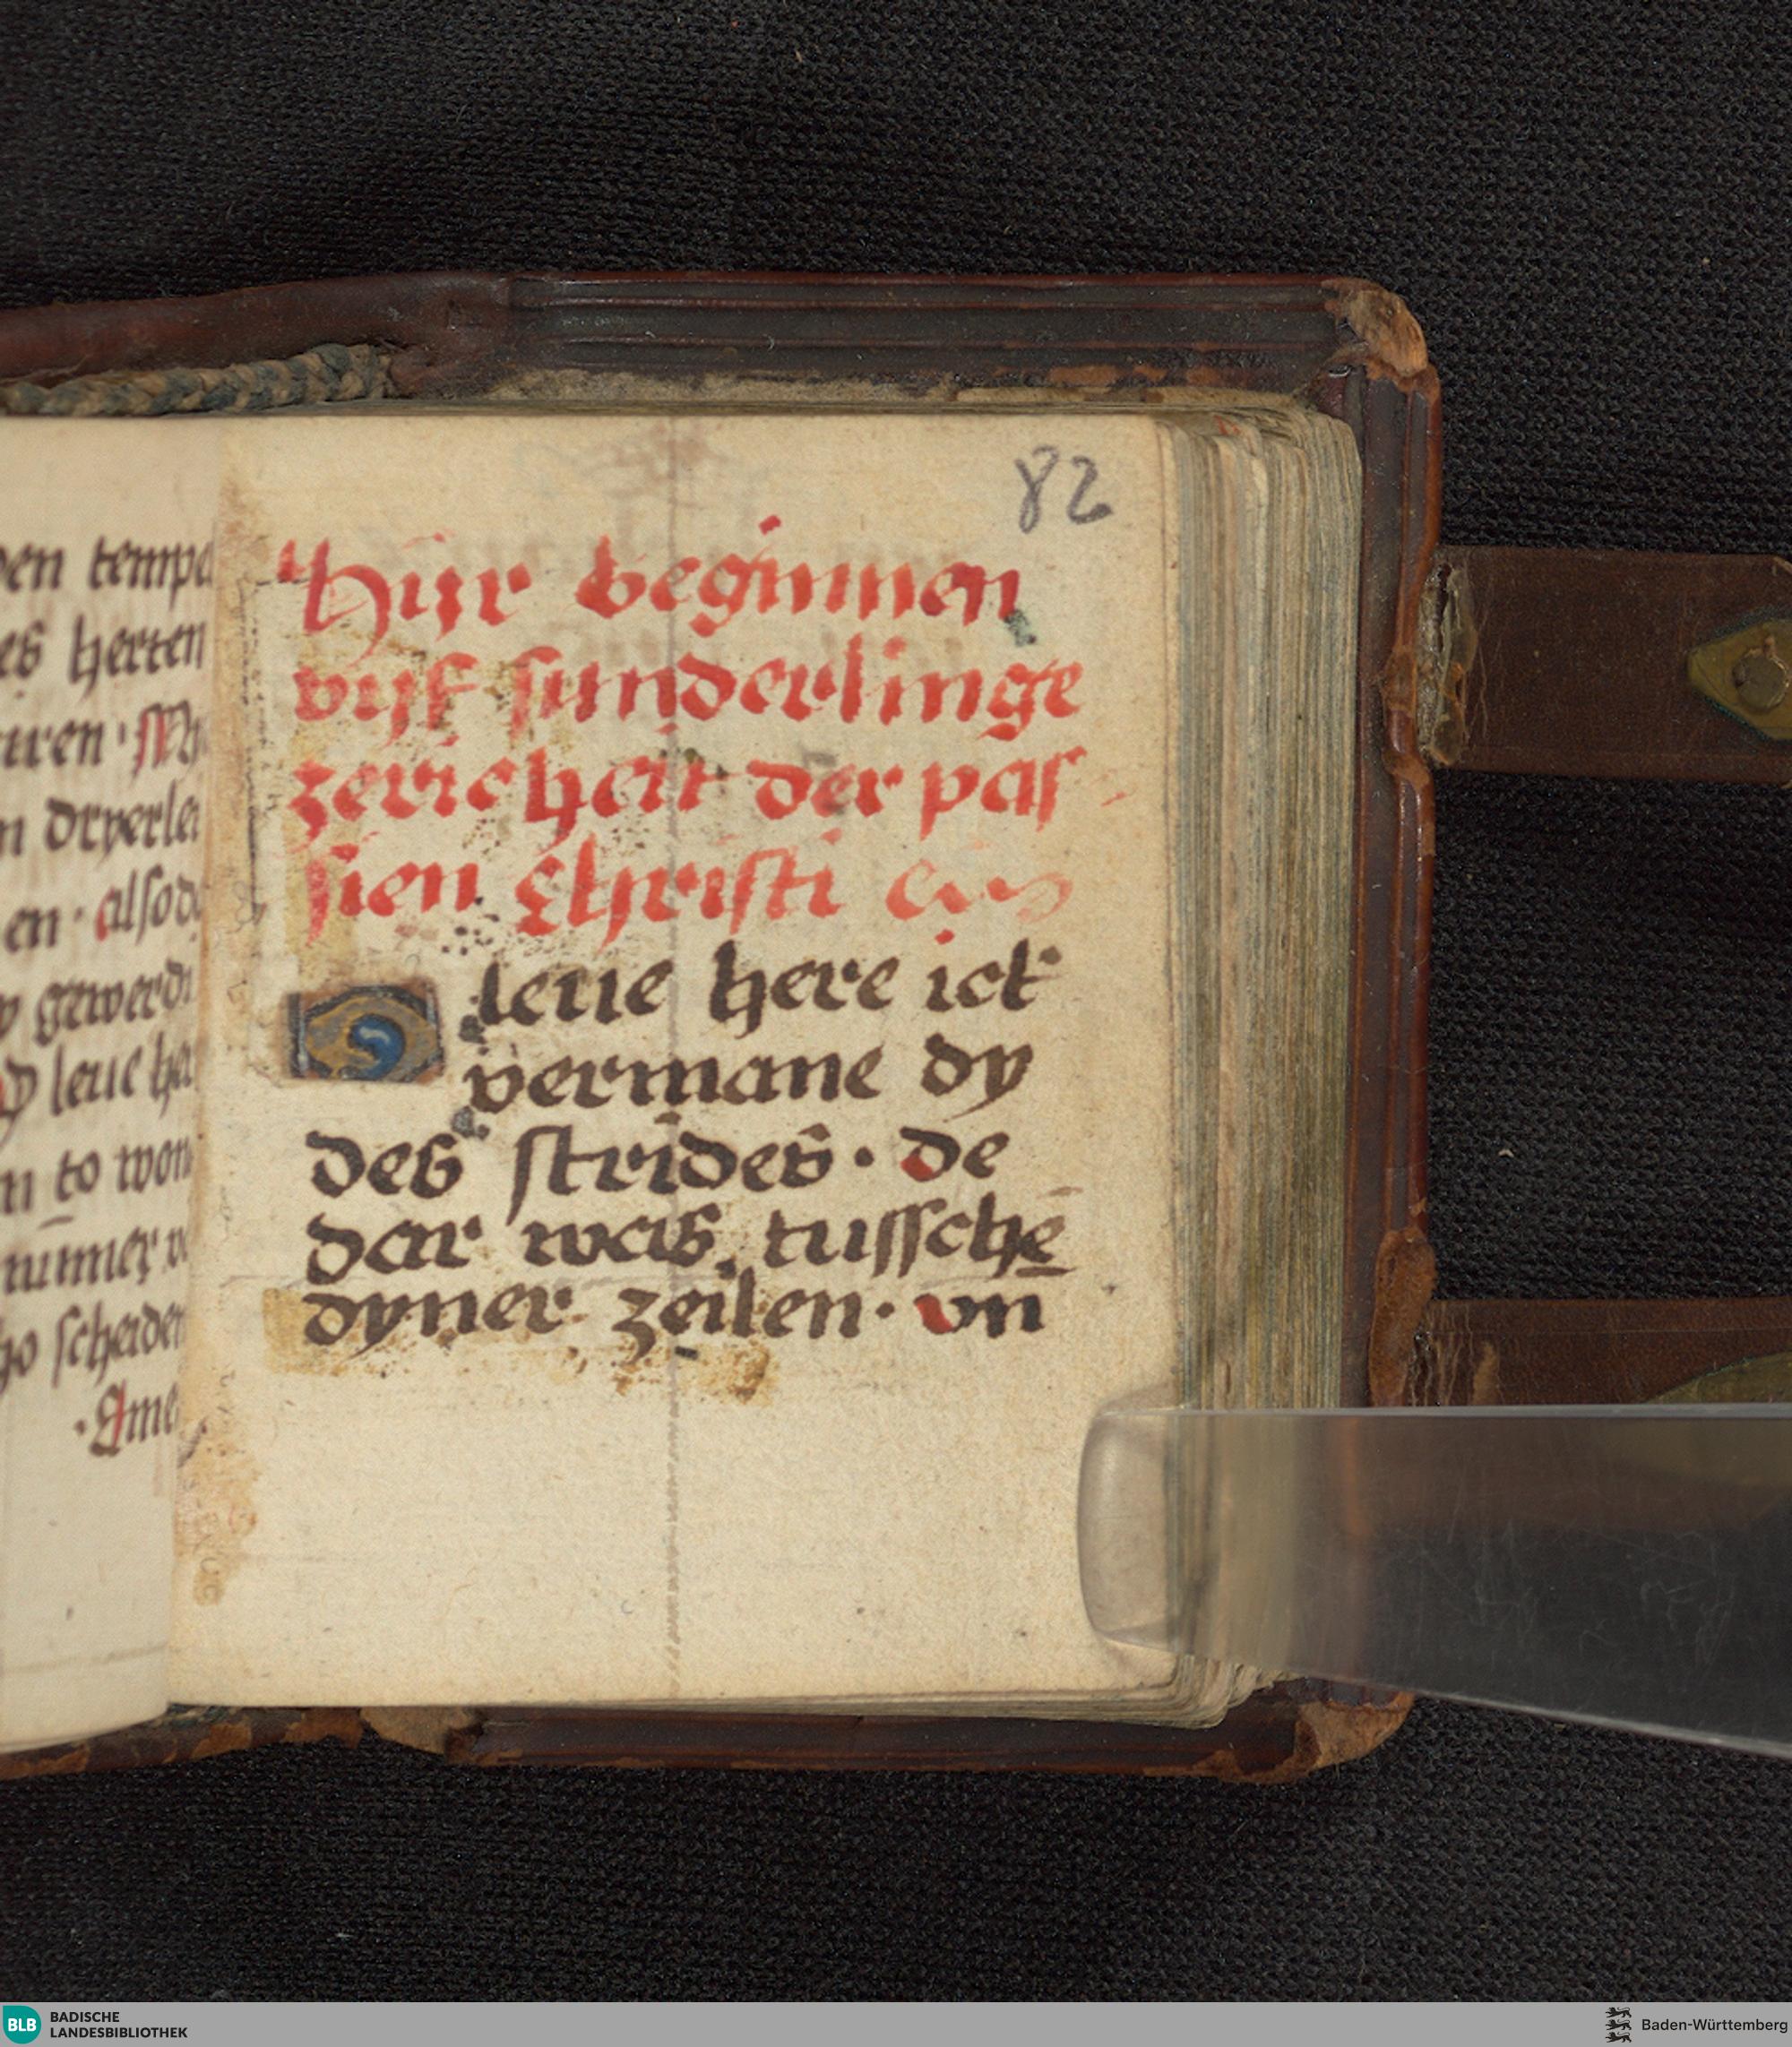 den tempe
es herten
uren · My
n dryerlei
en · alsodu
y gewerdi
leue her
n to won
nummer vo
ho scheiden
· Ame
82
Hijr beginnen
vijf sunderlinge
der pas
sien Christi
O leue here ick
vermane dy
des strides · de
dar was tusschē
dyner zeilen · vn
BLB BADISCHE
LANDESBIBLIOTHEK
Baden-Württemberg